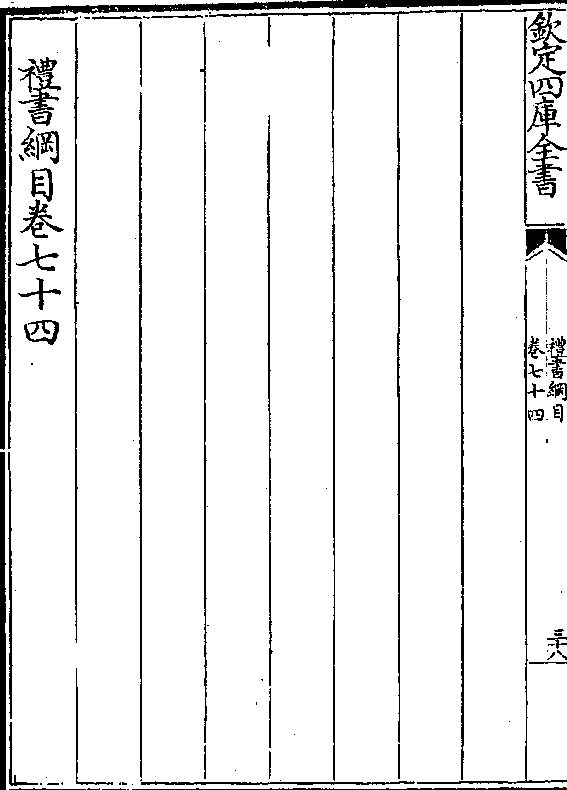 欽定四庫全書
禮書綱目
卷七十四
三十八
禮書綱目卷七十四